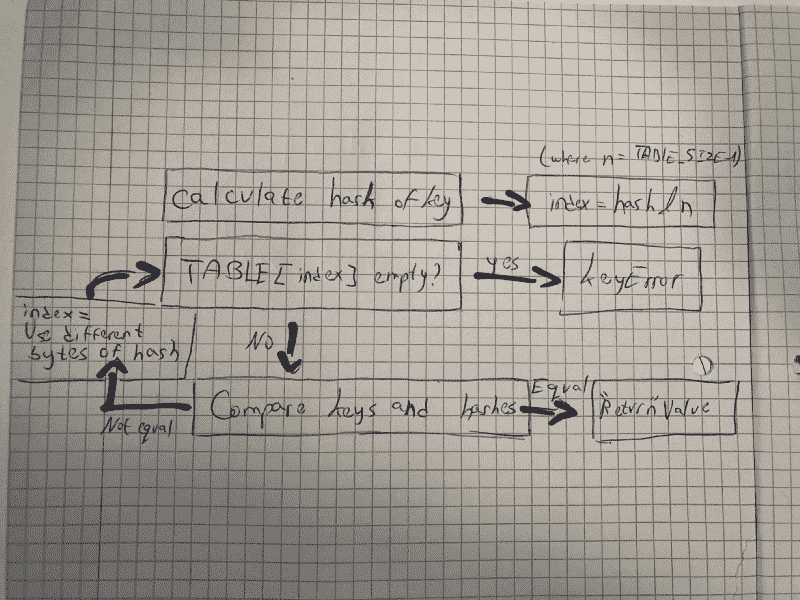 (where n = TABLE_SIZE-1)
Calculate hash of key
index = hash & n
TABLE[index] empty?
yes
KeyError
index=
Use different
bytes of hash
NO
Compare keys and hashes
Equal
"Return" Value
Not equal